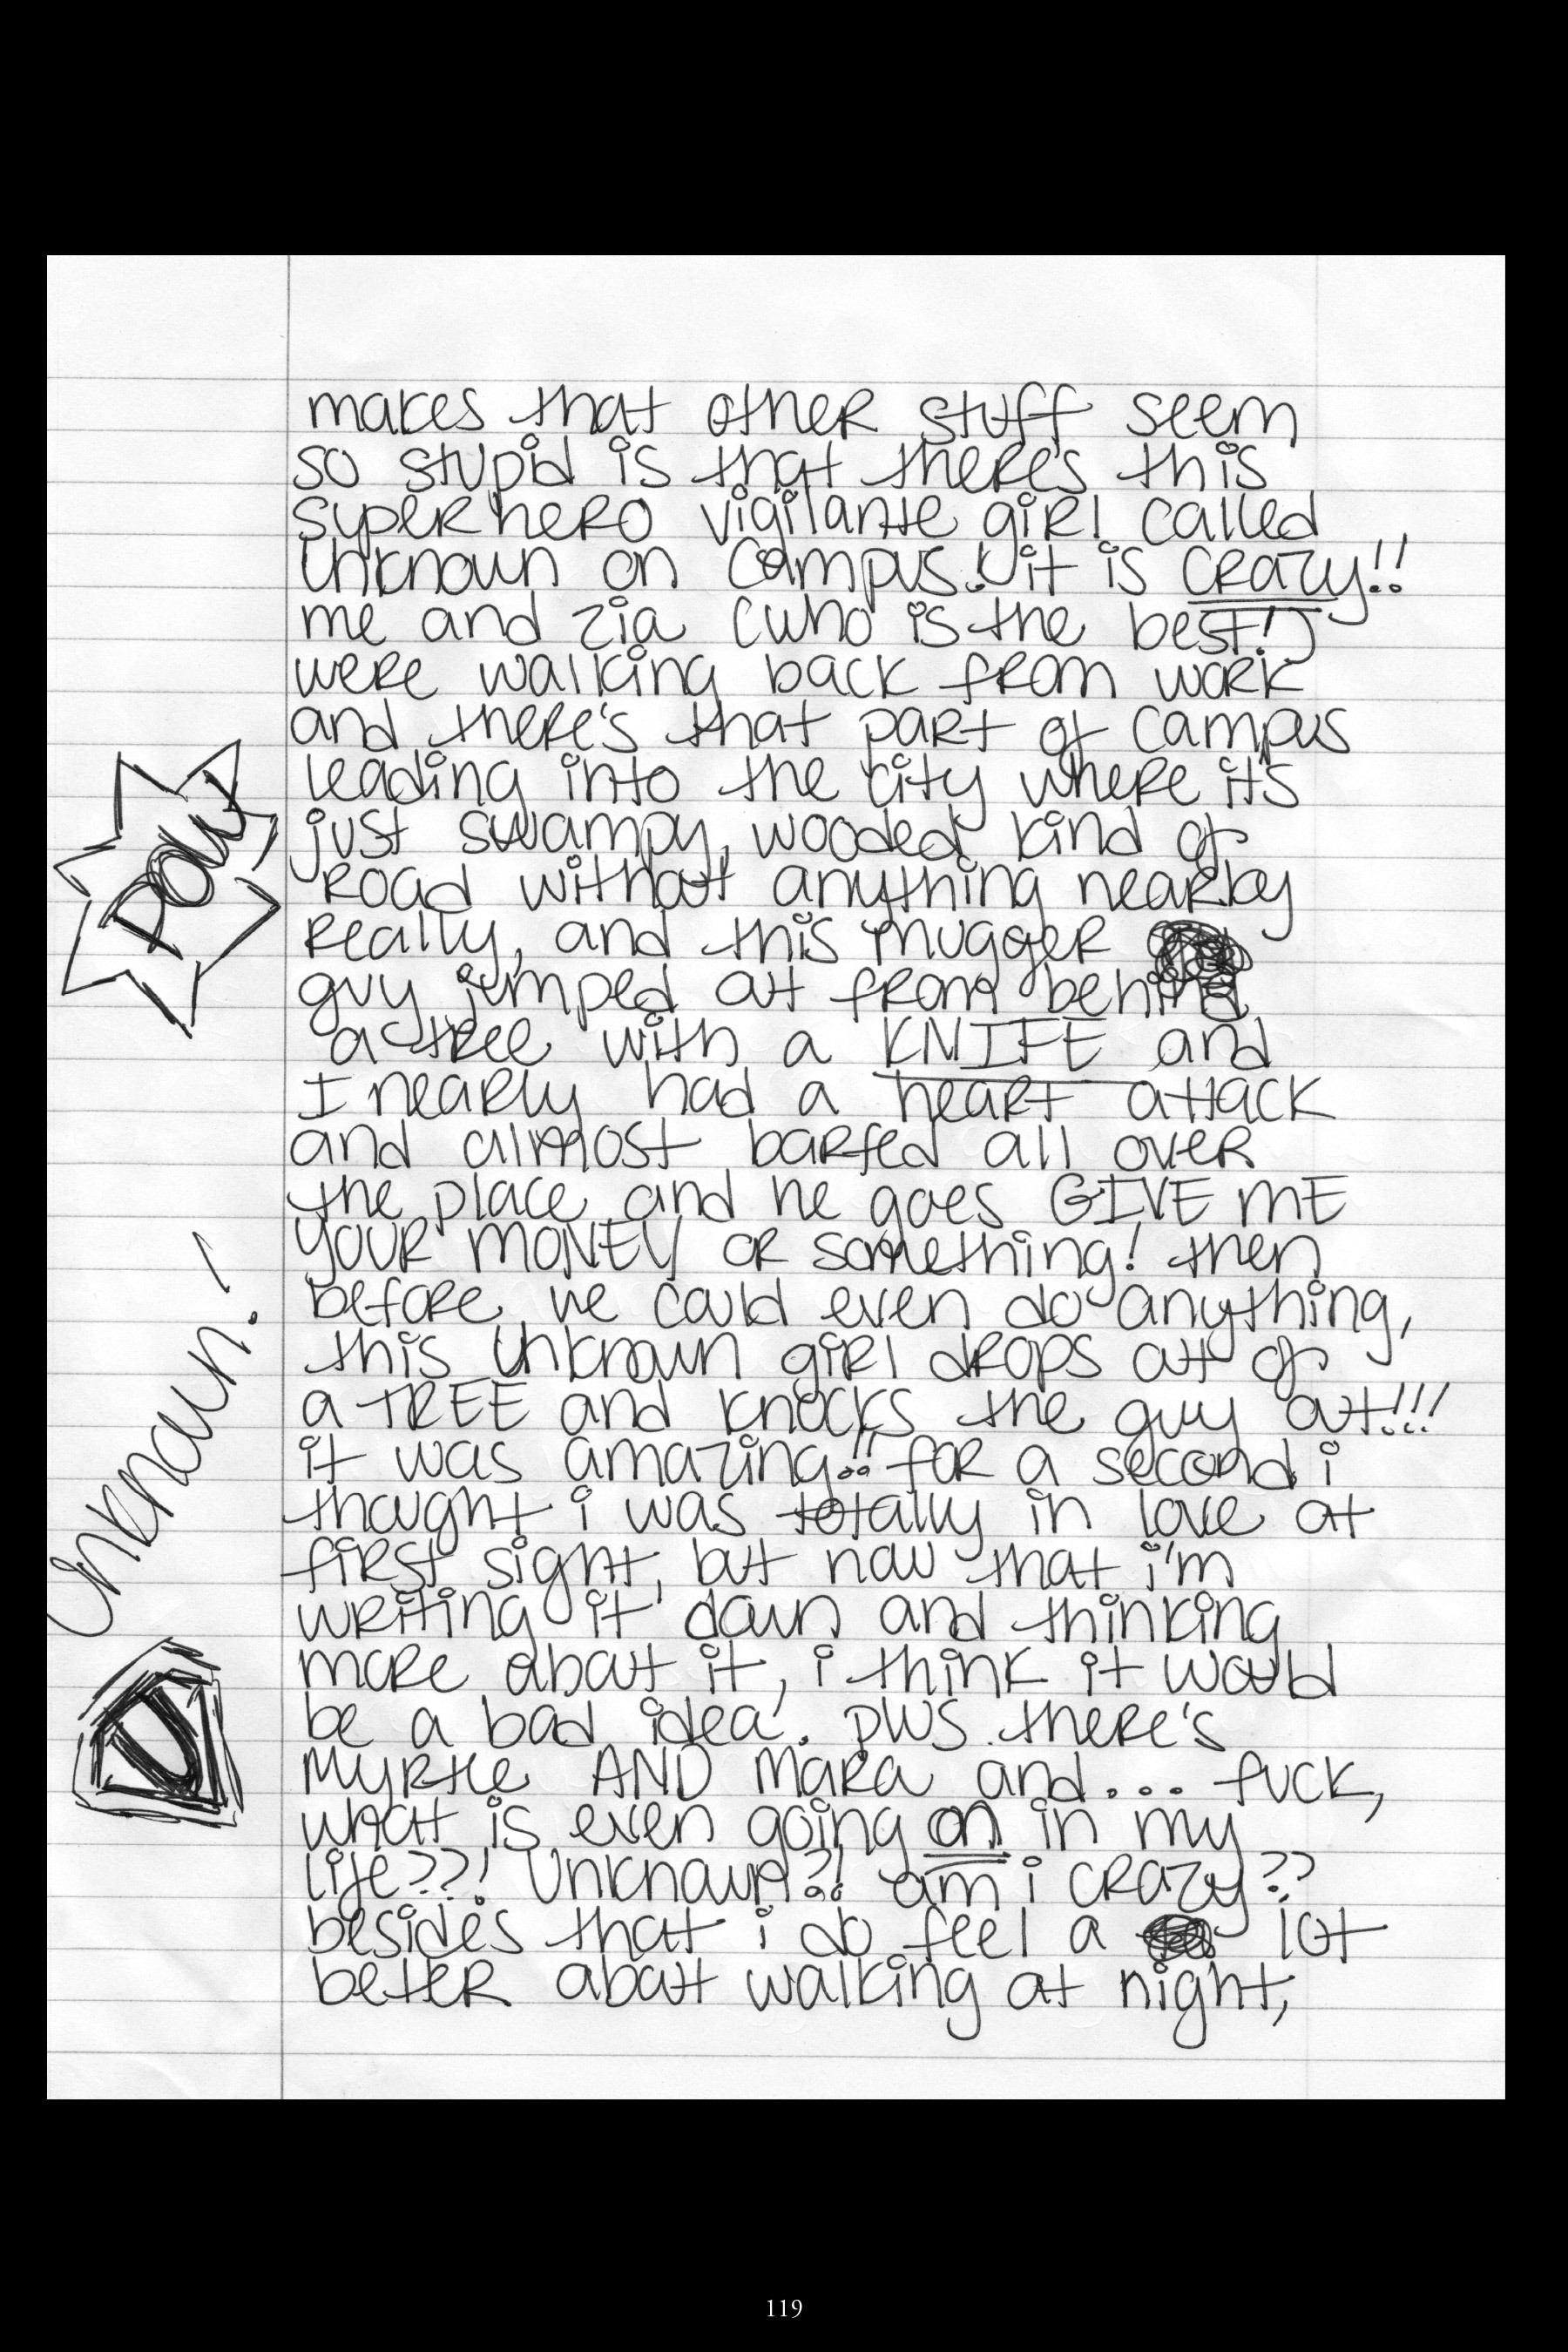 makes that other stuff seem
so stupid is that there's this
superhero vigilante girl called
Unknown on campus! it is crazy!!
me and zia (who is the best!)
were walking back from work
and there's that part of campus
leading into the city where it's
just swampy, wooded kind of
road without anything nearby
really, and this mugger
guy jumped out from behind
a tree with a KNIFE and
I nearly had a heart attack
and almost barfed all over
the place and he goes GIVE ME
YOUR MONEY or something! then
before we could even do anything,
this Unknown girl drops out of
a TREE and knocks the guy out!!!
it was amazing!! for a second i
thought i was totally in love at
first sight, but now that i'm
writing it down and thinking
more about it, i think it would
be a bad idea. plus there's
Myrtle AND Mara and... fuck,
what is even going on in my
life??! Unknown?! am i crazy??
besides that i do feel a lot
better about walking at night,
POW
Unknown!
U
119